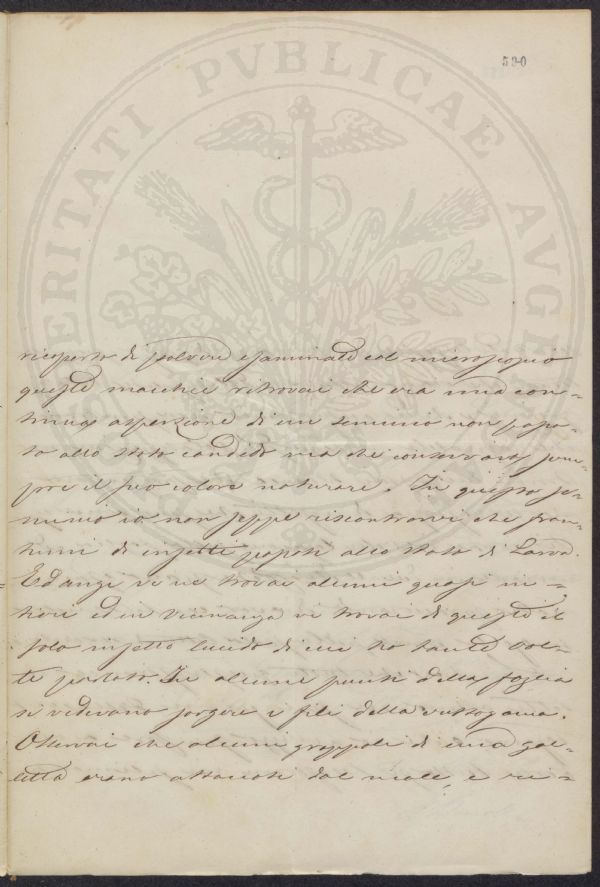 590
VERITATI PVBLICAE AVGE
ricoperto di polvere esaminate col microscopio
queste macchie ritrovai che era una con=
tinua aspersione di un seminio non passa=
to allo stato candido ma che conservava sem=
pre il suo colore naturare. In questo se=
minio io non seppi riscontrarvi che fran=
tumi di insetti passati allo stato di Larva.
Ed anzi ve ne trovai alcuni quasi in=
tieri ed in vicinanza vi trovai di queste il
solo insetto lucido di cui ho tante vol=
te parlato. In alcuni punti della foglia
si vedevano sorgere i fili della crittogama.
Osservai che alcuni grappoli di una
erano attaccati dal male, e